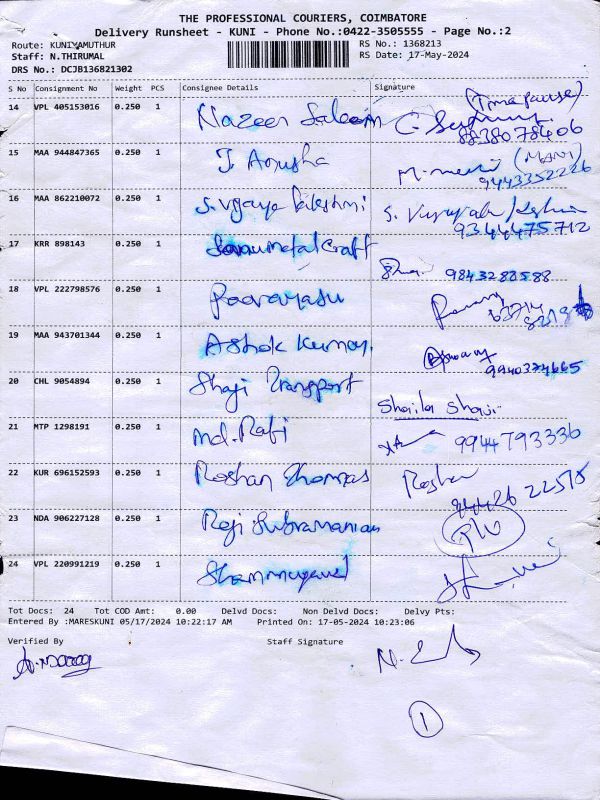 THE PROFESSIONAL COURIERS, COIMBATORE
Delivery Runsheet - KUNI - Phone No.:0422-3505555 - Page No.:2
Route: KUNIYAMUTHUR RS No.: 1368213
Staff: N.THIRUMAL RS Date: 17-May-2024
DRS No.: DCJB136821302
S No Consignment No Weight PCS Consignee Details Signature
14 VPL 405153016 0.250 1 Nazeer Saleem
8838078406
15 MAA 944847365 0.250 1 J. Anusha (Mani)
9443352226
16 MAA 862210072 0.250 1 S. Vijaya Lakshmi S.
9344475712
17 KRR 898143 0.250 1 Saravumetal Craft
9843288588
18 VPL 222798576 0.250 1
19 MAA 943701344 0.250 1 Ashok Kumar.
20 CHL 9054894 0.250 1 Shaji Transport
Shaila Shaji
21 MTP 1298191 0.250 1 Md. Rafi 9944793336
22 KUR 696152593 0.250 1 Roshan Thomas Roshan
94426 22515
23 NDA 906227128 0.250 1 Raji Subramanian
24 VPL 220991219 0.250 1 Shanmugavel
Tot Docs: 24 Tot COD Amt: 0.00 Delvd Docs: Non Delvd Docs: Delvy Pts:
Entered By :MARESKUNI 05/17/2024 10:22:17 AM Printed On: 17-05-2024 10:23:06
Verified By Staff Signature
1